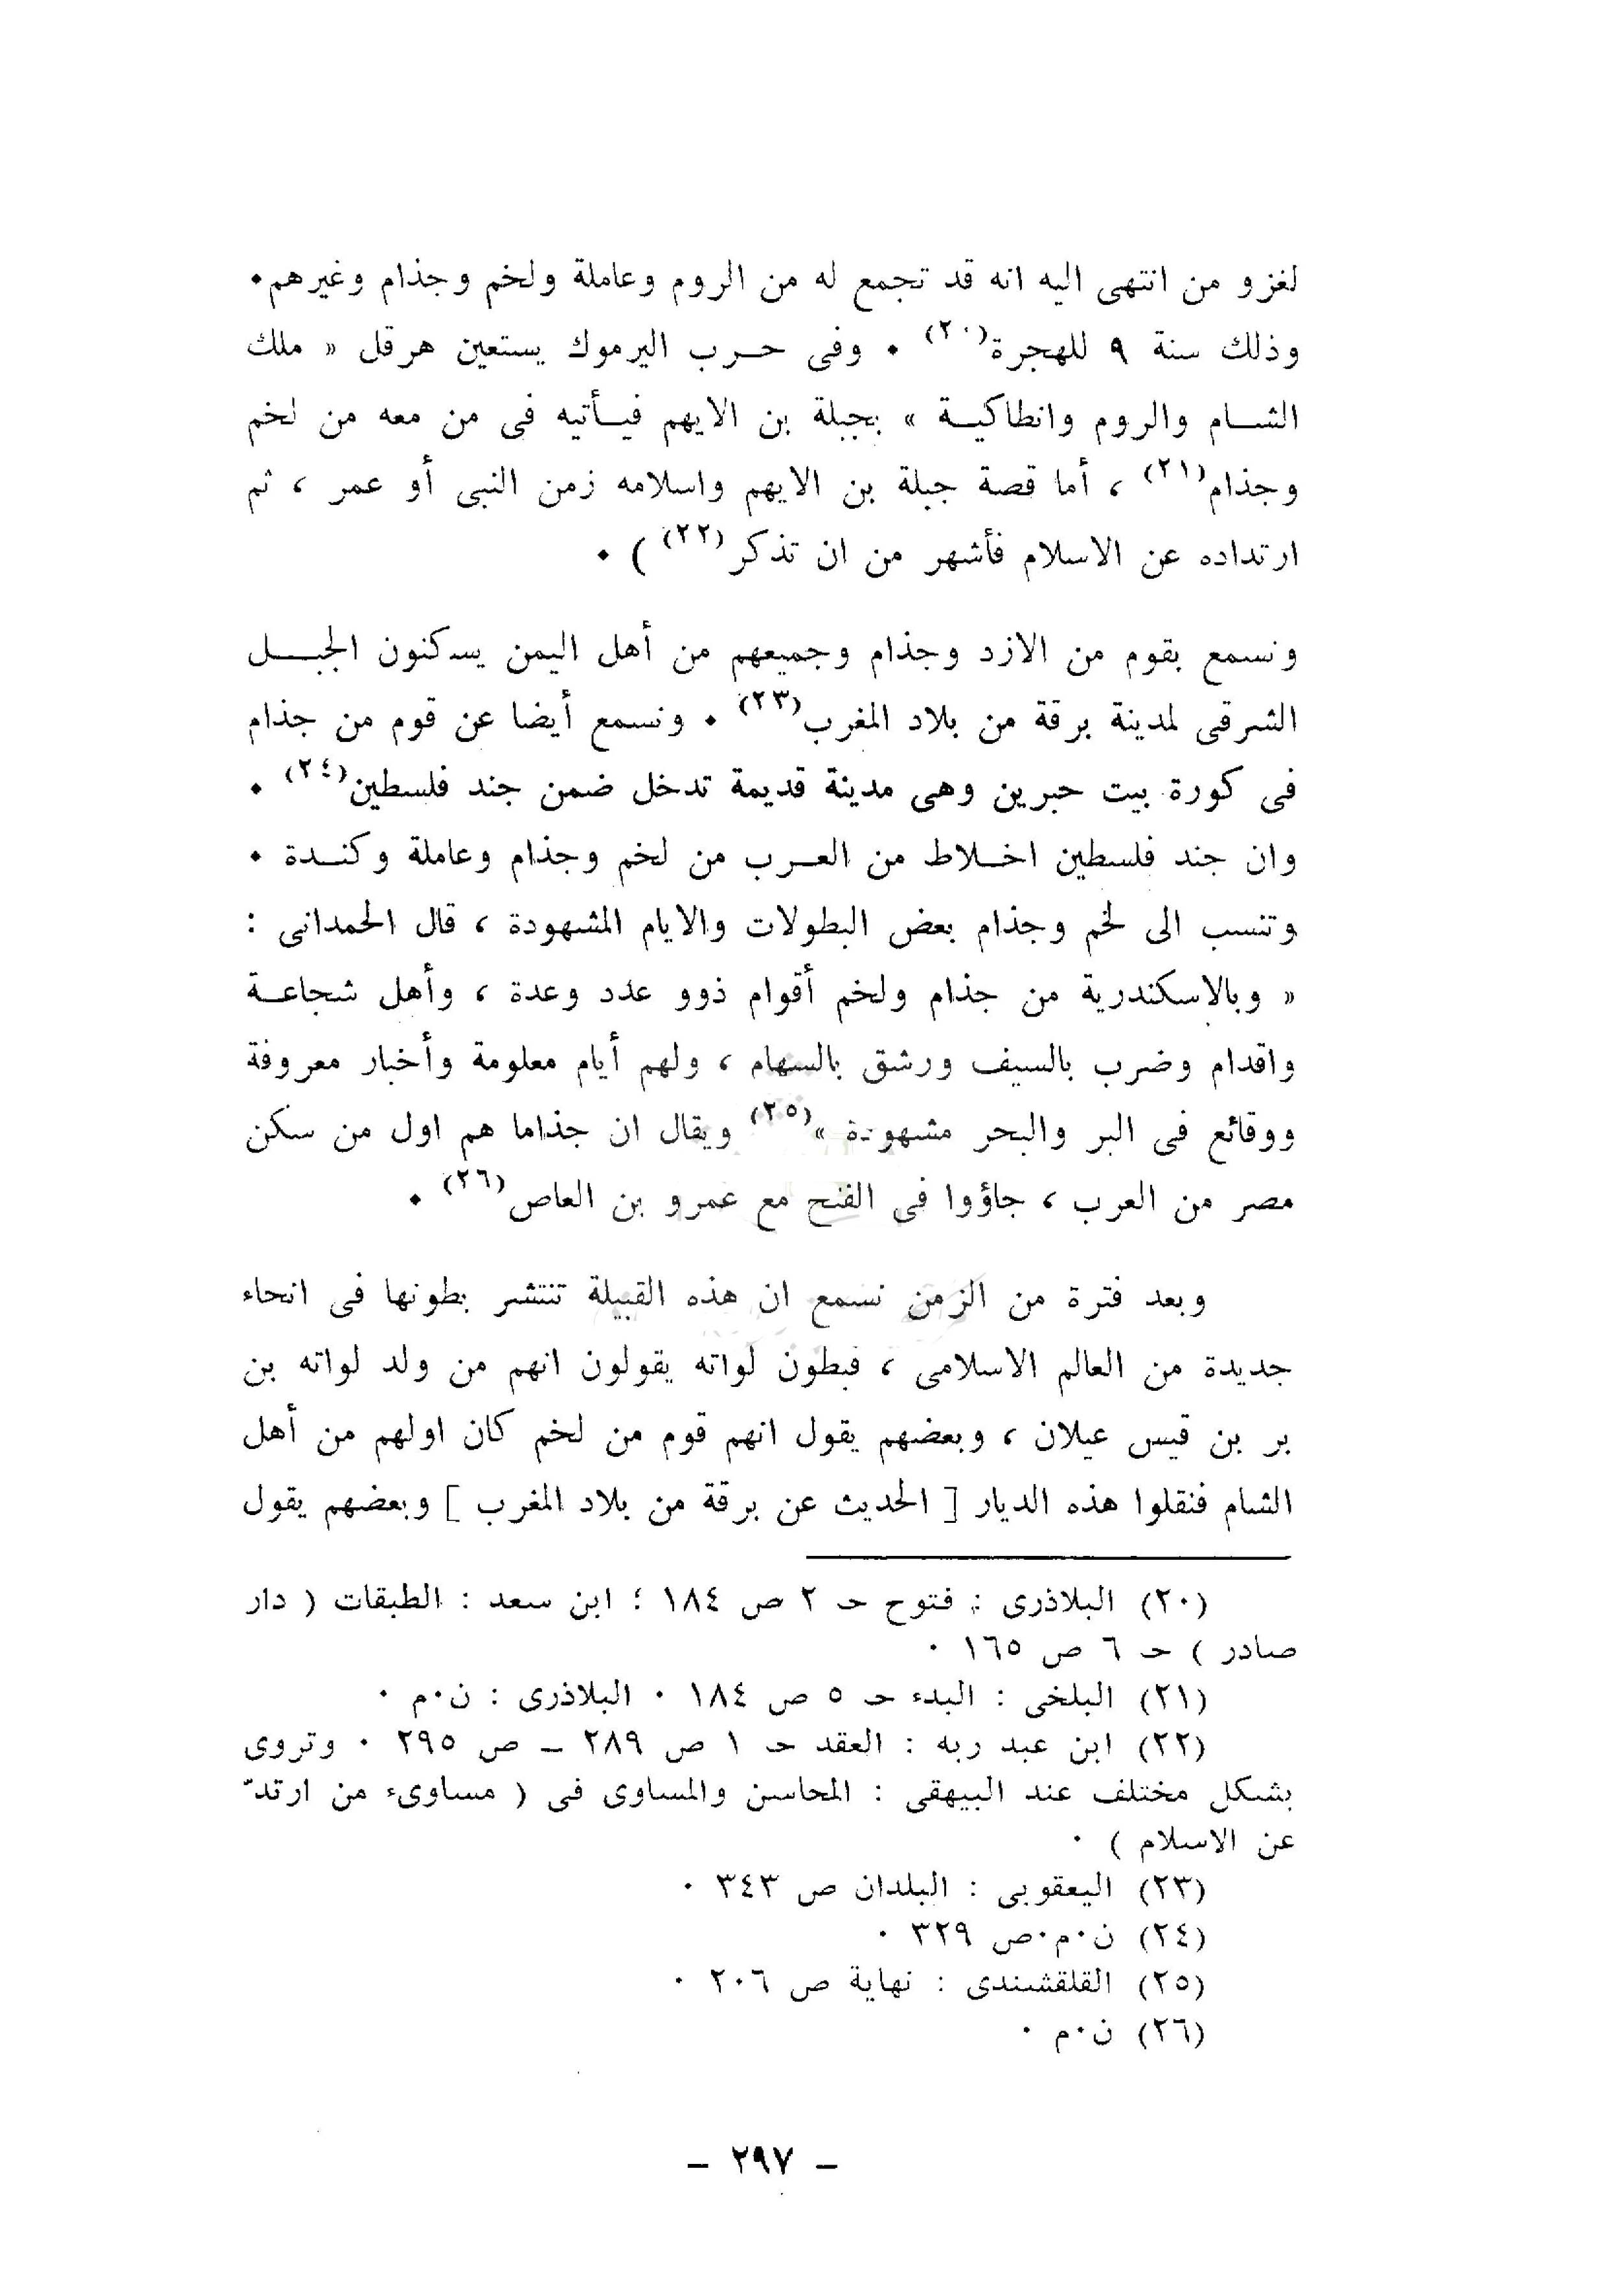 لغزو من انتهى اليه انه قد تجمع له من الروم وعاملة ولخم وجذام وغيرهم٠
وذلك سنة ٩ للهجرة(٢٠) ٠ وفى حــرب اليرموك يستعين هرقل « ملك
الشــام والروم وانطاكيــة » بجبلة بن الايهم فيــأتيه فى من معه من لخم
وجذام(٢١) ، أما قصة جبلة بن الايهم واسلامه زمن النبى أو عمر ، ثم
ارتداده عن الاسلام فأشهر من ان تذكر(٢٢) ) ٠
ونسمع بقوم من الازد وجذام وجميعهم من أهل اليمن يسكنون الجبــل
الشرقى لمدينة برقة من بلاد المغرب(٢٣) ٠ ونسمع أيضا عن قوم من جذام
فى كورة بيت حبرين وهى مدينة قديمة تدخل ضمن جند فلسطين(٢٤) ٠
وان جند فلسطين اخــلاط من العــرب من لخم وجذام وعاملة وكنــدة ٠
وتنسب الى لخم وجذام بعض البطولات والايام المشهودة ، قال الحمدانى :
« وبالاسكندرية من جذام ولخم أقوام ذوو عدد وعدة ، وأهل شجاعــة
واقدام وضرب بالسيف ورشق بالسهام ، ولهم أيام معلومة وأخبار معروفة
ووقائع فى البر والبحر مشهودة »(٢٥) ويقال ان جذاما هم اول من سكن
مصر من العرب ، جاؤوا فى الفتح مع عمرو بن العاص(٢٦) ٠
وبعد فترة من الزمن نسمع ان هذه القبيلة تنتشر بطونها فى انحاء
جديدة من العالم الاسلامى ، فبطون لواته يقولون انهم من ولد لواته بن
بر بن قيس عيلان ، وبعضهم يقول انهم قوم من لخم كان اولهم من أهل
الشام فنقلوا هذه الديار [ الحديث عن برقة من بلاد المغرب ] وبعضهم يقول
(٢٠) البلاذرى : فتوح حـ ٢ ص ١٨٤ ؛ ابن سعد : الطبقات ( دار
صادر ) حـ ٦ ص ١٦٥ ٠
(٢١) البلخى : البدء حـ ٥ ص ١٨٤ ٠ البلاذرى : ن٠م ٠
(٢٢) ابن عبد ربه : العقد حـ ١ ص ٢٨٩ ــ ص ٢٩٥ ٠ وتروى
بشكل مختلف عند البيهقى : المحاسن والمساوى فى ( مساوىء من ارتدّ
عن الاسلام ) ٠
(٢٣) اليعقوبى : البلدان ص ٣٤٣ ٠
(٢٤) ن٠م٠ص ٣٢٩ ٠
(٢٥) القلقشندى : نهاية ص ٢٠٦ ٠
(٢٦) ن٠م ٠
– ٢٩٧ –